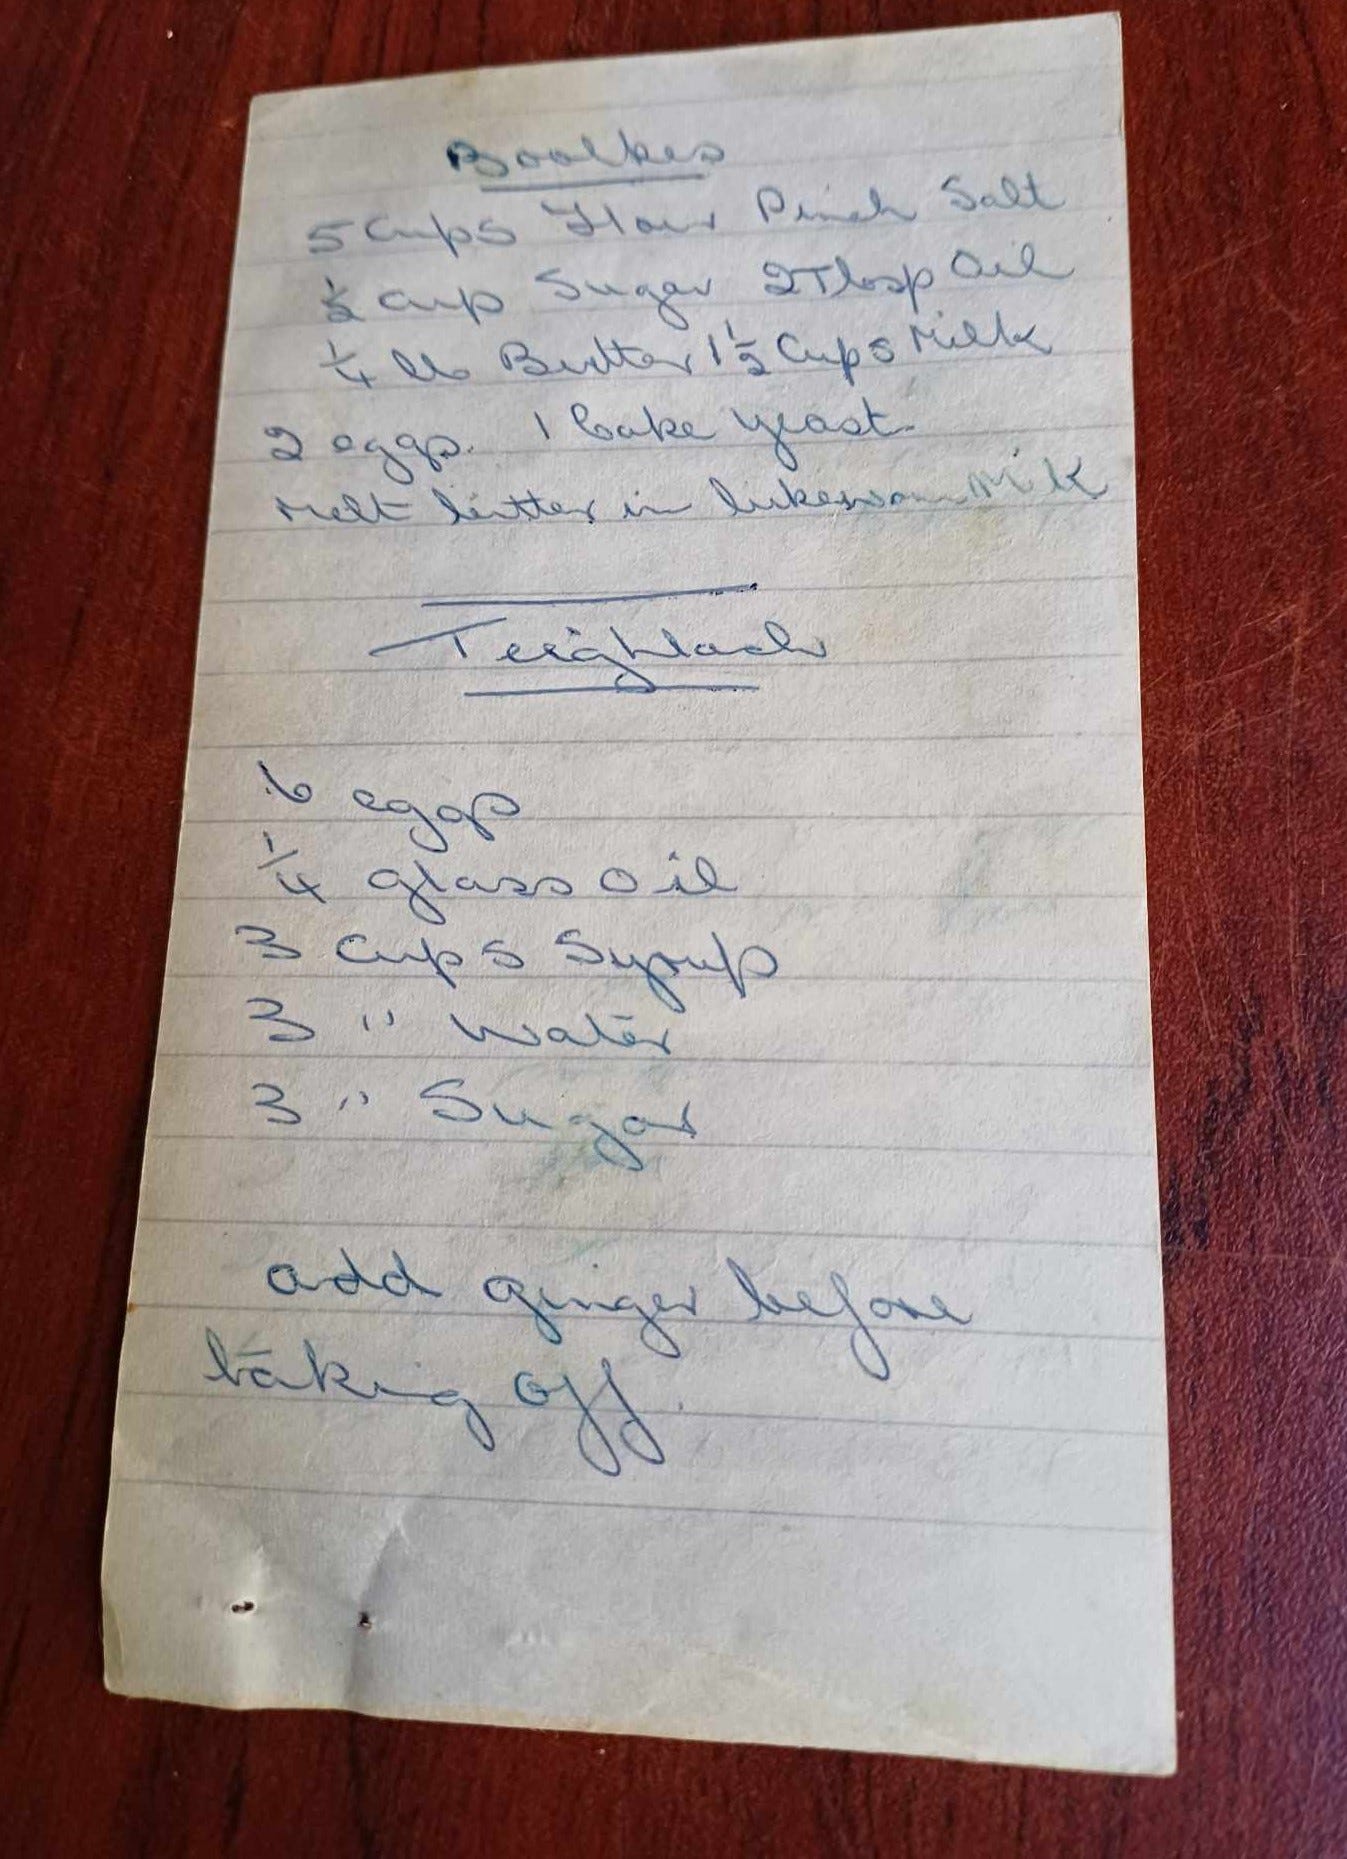 Boolkes
5 Cups Flour Pinch Salt
½ Cup Sugar 2 Tbsp Oil
¼ lb Butter 1½ Cups Milk
2 eggs. 1 Cake Yeast.
Melt butter in lukewarm Milk
Teighlach
6 eggs
¼ glass oil
3 Cups Syrup
3 " water
3 " Sugar
add ginger before
taking off.